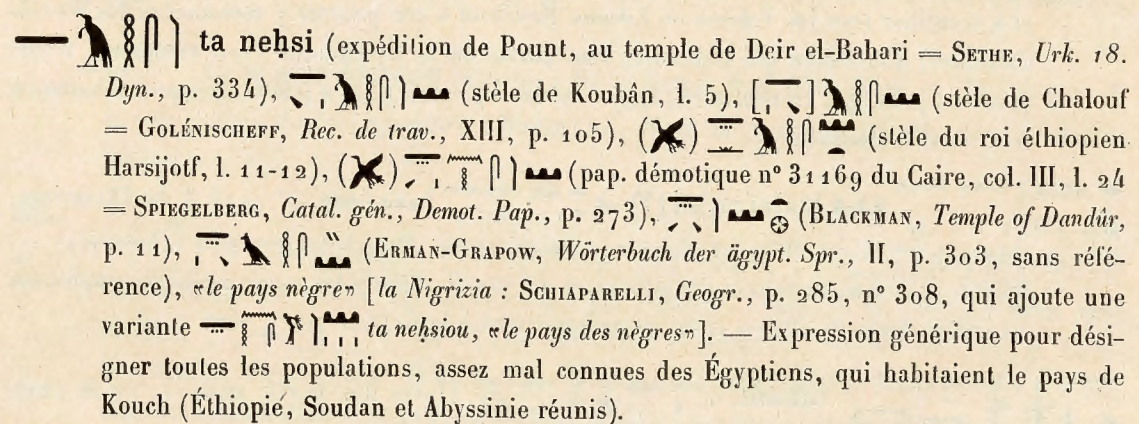 ta neḥsi (expédition de Pount, au temple de Deir el-Bahari = SETHE, Urk. 18.
Dyn., p. 334), (stèle de Koubân, l. 5), [ ] (stèle de Chalouf
= GOLÉNISCHEFF, Rec. de trav., XIII, p. 105), ( ) (stèle du roi éthiopien
Harsijotf, l. 11-12), ( ) (pap. démotique n° 31169 du Caire, col. III, l. 24
= SPIEGELBERG, Catal. gén., Demot. Pap., p. 273), (BLACKMAN, Temple of Dandûr,
p. 11), (ERMAN-GRAPOW, Wörterbuch der ägypt. Spr., II, p. 303, sans réfé-
rence), «le pays nègre» [la Nigrizia : SCHIAPARELLI, Geogr., p. 285, n° 308, qui ajoute une
variante ta neḥsiou, «le pays des nègres»]. — Expression générique pour dési-
gner toutes les populations, assez mal connues des Égyptiens, qui habitaient le pays de
Kouch (Éthiopie, Soudan et Abyssinie réunis).